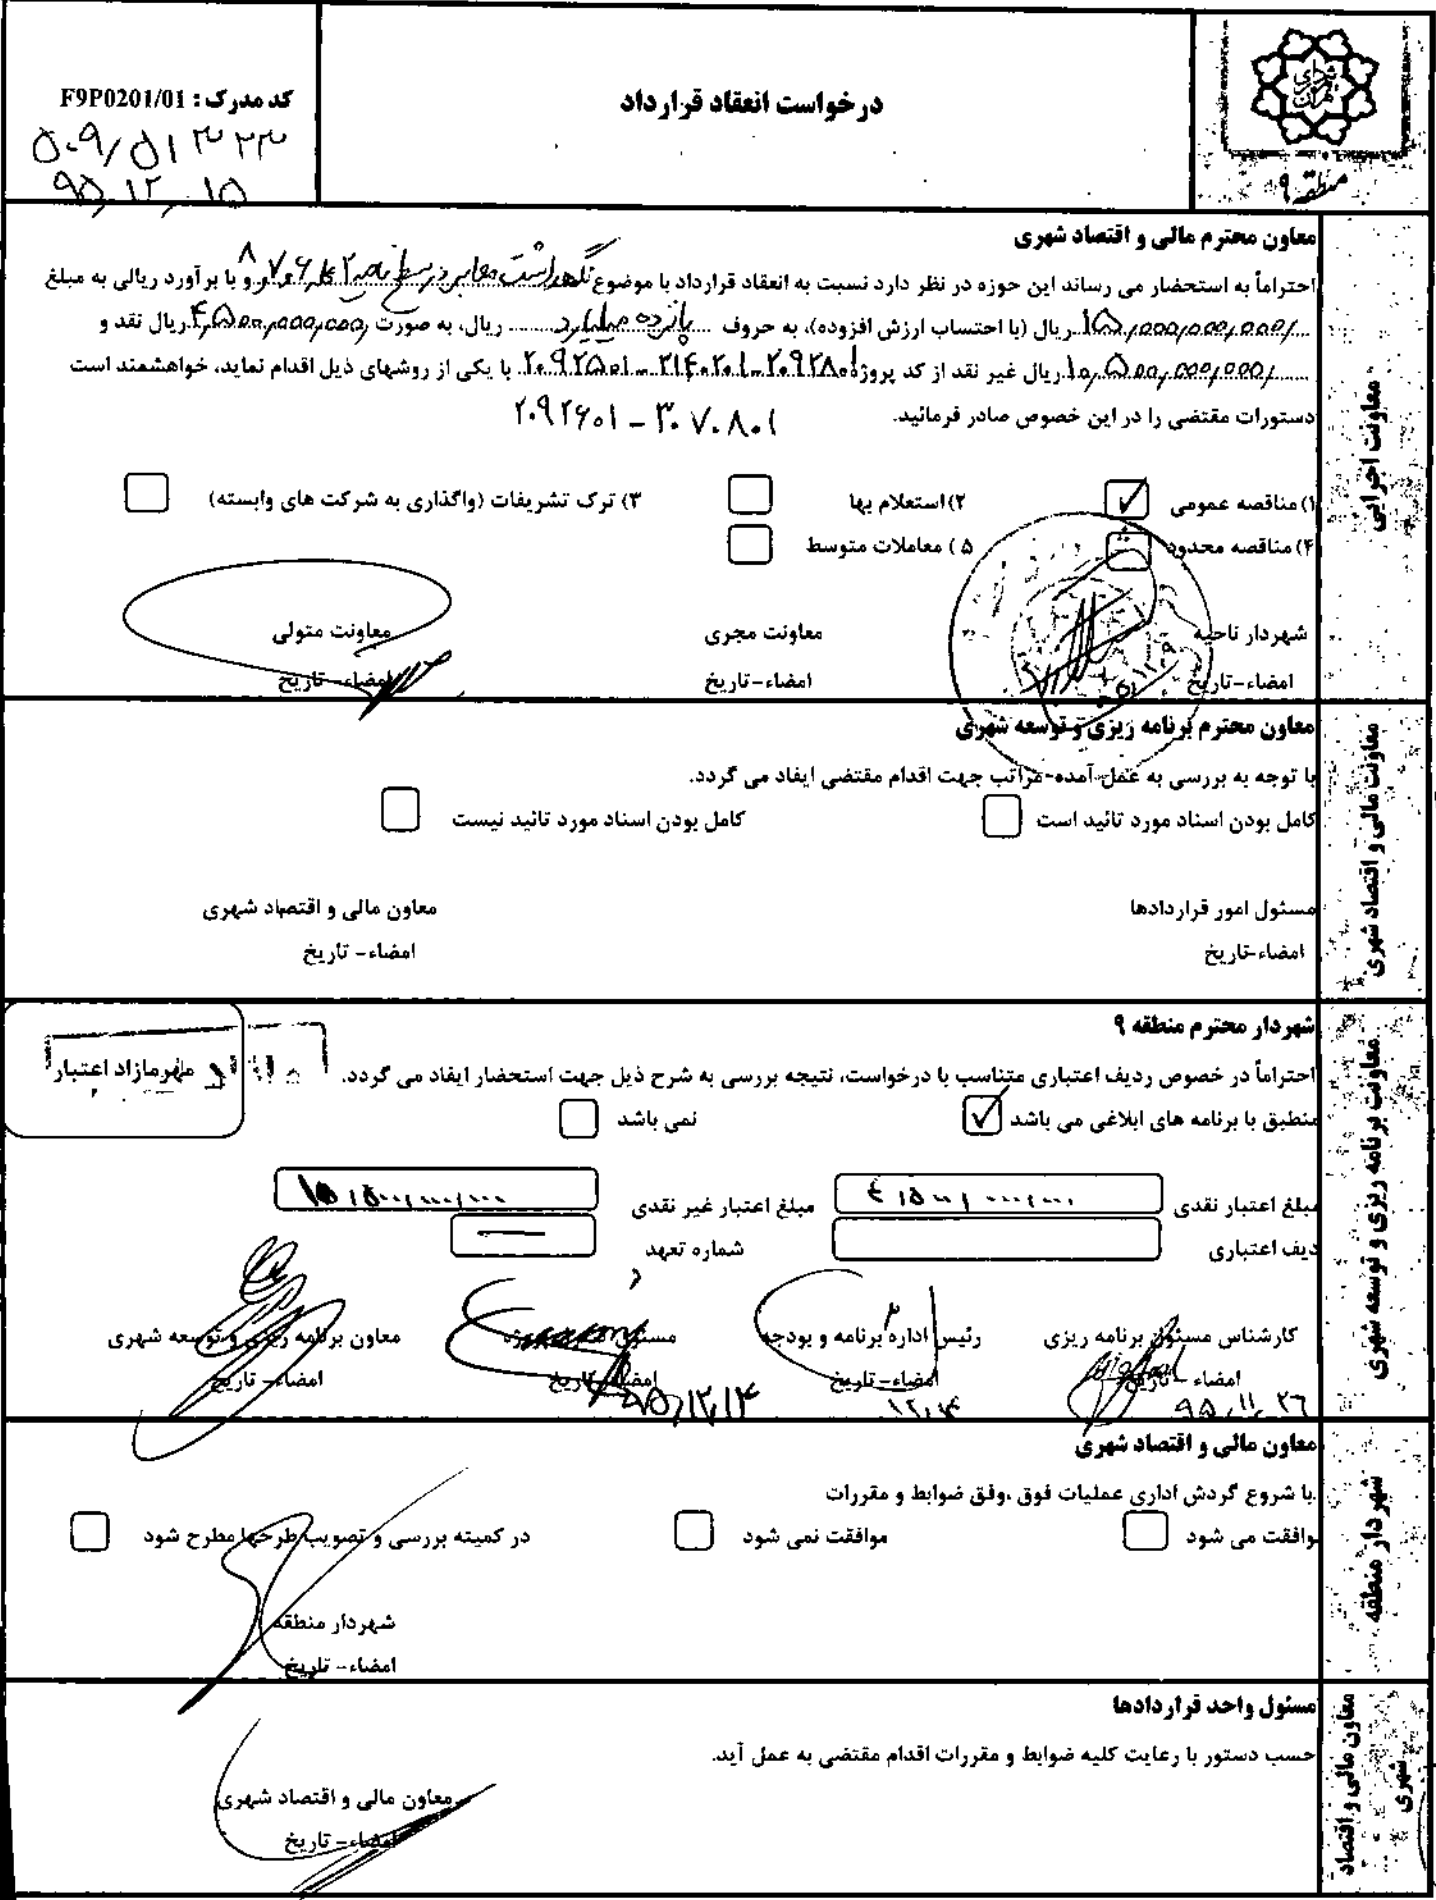 منطقه ۹
درخواست انعقاد قرارداد
کد مدرک : F9P0201/01
۵۰۹/۵۱۳۲۳
۹۵,۱۲,۱۵
معاونت اجرایی
معاون محترم مالی و اقتصاد شهری
احتراماً به استحضار می رساند این حوزه در نظر دارد نسبت به انعقاد قرارداد با موضوع نگهداشت معابر در سطح ناحیه ۲ و با برآورد ریالی به مبلغ
۱۵,۰۰۰,۰۰۰,۰۰۰/ ریال (با احتساب ارزش افزوده)، به حروف پانزده میلیارد ریال، به صورت ۴,۵۰۰,۰۰۰,۰۰۰ ریال نقد و
۱۰,۵۰۰,۰۰۰,۰۰۰/ ریال غیر نقد از کد پروژه ۲۰۹۲۸۰۱-۲۱۴۰۲۰۱-۲۰۹۲۵۰۱ با یکی از روشهای ذیل اقدام نماید، خواهشمند است
دستورات مقتضی را در این خصوص صادر فرمائید. ۳۰۷۰۸۰۱ - ۲۰۹۲۶۰۱
۱) مناقصه عمومی ✓ ۲) استعلام بها ۳) ترک تشریفات (واگذاری به شرکت های وابسته)
۴) مناقصه محدود ۵) معاملات متوسط
شهردار ناحیه معاونت مجری معاونت متولی
امضاء-تاریخ امضاء-تاریخ امضاء- تاریخ
معاونت مالی و اقتصاد شهری
معاون محترم برنامه ریزی و توسعه شهری
با توجه به بررسی به عمل آمده-مراتب جهت اقدام مقتضی ایفاد می گردد.
کامل بودن اسناد مورد تائید است کامل بودن اسناد مورد تائید نیست
مسئول امور قراردادها معاون مالی و اقتصاد شهری
امضاء-تاریخ امضاء- تاریخ
معاونت برنامه ریزی و توسعه شهری
شهردار محترم منطقه ۹
مهرمازاد اعتبار
احتراماً در خصوص ردیف اعتباری متناسب با درخواست، نتیجه بررسی به شرح ذیل جهت استحضار ایفاد می گردد.
منطبق با برنامه های ابلاغی می باشد ✓ نمی باشد
مبلغ اعتبار نقدی ۴,۵۰۰,۰۰۰,۰۰۰ مبلغ اعتبار غیر نقدی ۱۰,۵۰۰,۰۰۰,۰۰۰
دیف اعتباری شماره تعهد —
کارشناس مسئول برنامه ریزی رئیس اداره برنامه و بودجه مسئول معاون برنامه ریزی و توسعه شهری
امضاء - تاریخ امضاء- تاریخ امضاء- تاریخ امضاء- تاریخ
۹۵,۱۱,۲۶ ۱۲,۱۴ ۹۵,۱۲,۱۴
شهردار منطقه
معاون مالی و اقتصاد شهری
با شروع گردش اداری عملیات فوق ،وفق ضوابط و مقررات
وافقت می شود موافقت نمی شود در کمیته بررسی و تصویب طرحها مطرح شود
شهردار منطقه
امضاء- تاریخ
معاون مالی و اقتصاد شهری
مسئول واحد قراردادها
حسب دستور با رعایت کلیه ضوابط و مقررات اقدام مقتضی به عمل آید.
معاون مالی و اقتصاد شهری
امضاء- تاریخ